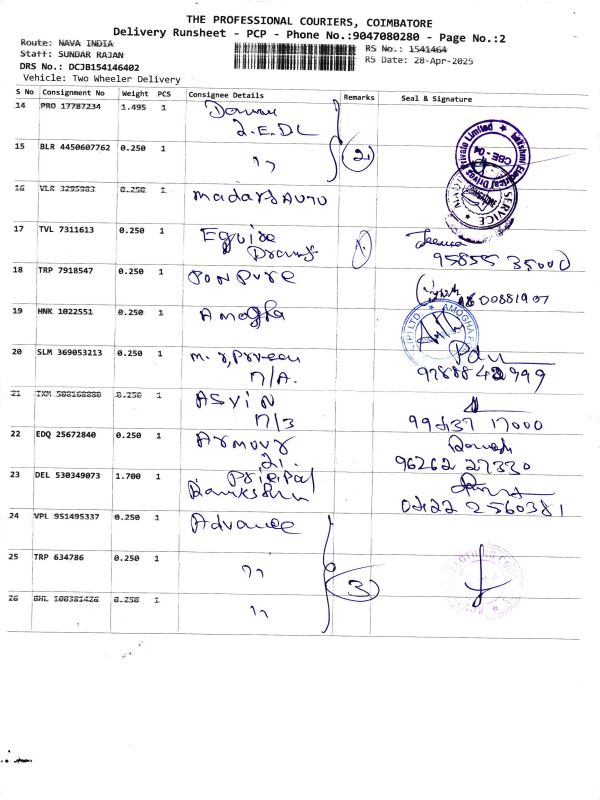 THE PROFESSIONAL COURIERS, COIMBATORE
Delivery Runsheet - PCP - Phone No.:9047080280 - Page No.:2
Route: NAVA INDIA
RS No.: 1541464
Staff: SUNDAR RAJAN
RS Date: 28-Apr-2025
DRS No.: DCJB154146402
Vehicle: Two Wheeler Delivery
S No Consignment No Weight PCS Consignee Details Remarks Seal & Signature
14 PRO 17787234 1.495 1
L.E.DL
15 BLR 4450607762 0.250 1 " 2
Lakshmi Electrical Drives Private Limited
CBE - 04
16 VLR 3295983 0.250 1 madars AUTO
SERVICE
17 TVL 7311613 0.250 1 1
95855 35000
18 TRP 7918547 0.250 1 PONPURE
19 HNK 1022551 0.250 1 Amogha
AMOGHA
20 SLM 369053213 0.250 1
n/A.
21 TXM 508168880 0.250 1 ASVIN
n/3
22 EDQ 25672840 0.250 1 Armour
21.
96262 27330
23 DEL 530349073 1.700 1
0422 2560381
24 VPL 951495337 0.250 1 Advance
25 TRP 634786 0.250 1 " 3
26 BHL 100381426 0.250 1 "